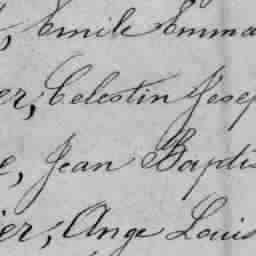 , Emile Emma
er, Celestin Josep
e, Jean Baptis
ier, Ange Louis